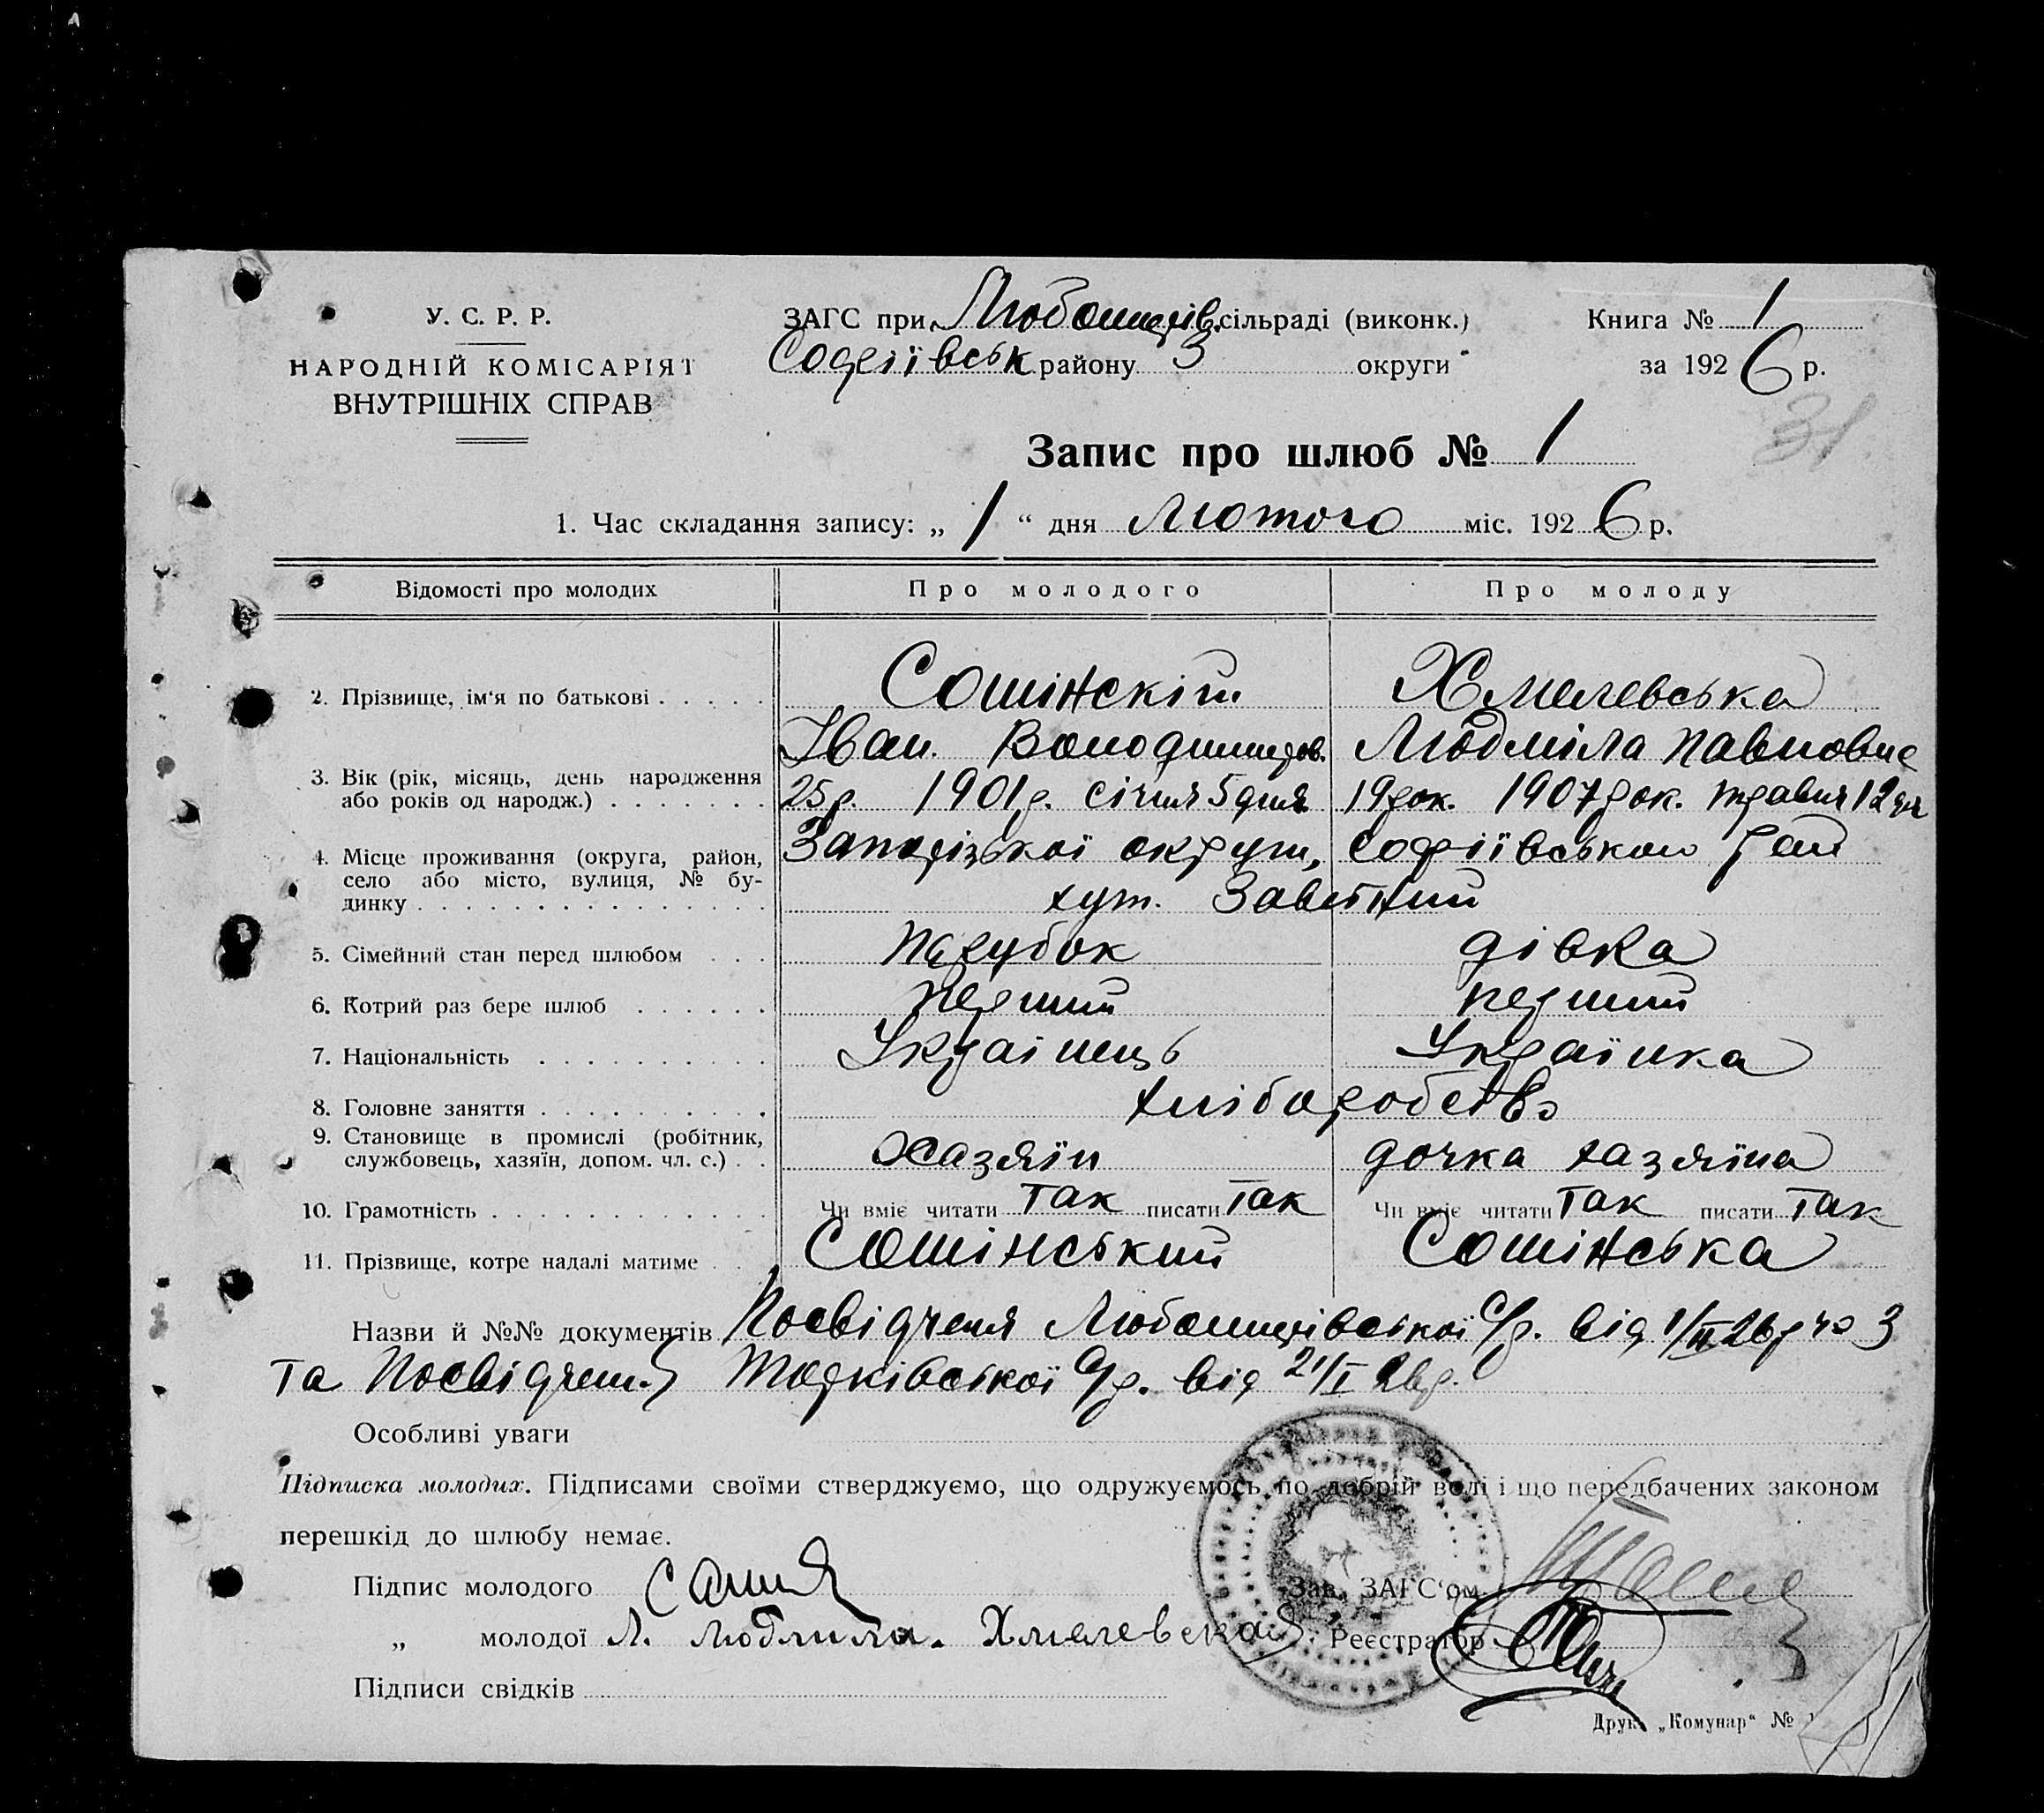 У. С. Р. Р.
НАРОДНІЙ КОМІСАРІЯТ
ВНУТРІШНІХ СПРАВ
ЗАГС при Любомирів. сільраді (виконк.)
Софіївськ району З округи
Книга № 1
за 1926 р.
31
Запис про шлюб № 1
1. Час складання запису: „ 1 “ дня Лютого міс. 1926 р.
Відомості про молодих Про молодого Про молоду
2. Прізвище, ім'я по батькові Сошінскій Хмелевська
Іван Володимиров. Людміла Павловна
3. Вік (рік, місяць, день народження
або років од народж.) 25 р. 1901 р. січня 5 дня 19 рок. 1907 рок. травня 12 дня
4. Місце проживання (округа, район,
село або місто, вулиця, № бу-
динку Запорізької округи, Софіївського рай
хут. Заветний
5. Сімейний стан перед шлюбом парубок дівка
6. Котрий раз бере шлюб перший перший
7. Національність Українець Українка
8. Головне заняття хліборобство
9. Становище в промислі (робітник,
службовець, хазяїн, допом. чл. с.) Хазяїн дочка хазяїна
10. Грамотність Чи вміє читати так писати так Чи вміє читати так писати так
11. Прізвище, котре надалі матиме Сошінський Сошінська
Назви й №№ документів Посвідченя Любомирівської с/р. від 1/II 26 р. чо 3
та Посвідчен. с/р. від 21/I 26 р.
Особливі уваги
Підписка молодих. Підписами своїми стверджуємо, що одружуємось по добрій волі і що передбачених законом
перешкід до шлюбу немає.
Підпис молодого
Зав. ЗАГС'ом
„ молодої Л. Людмила. Хмелевская
Реєстратор
Підписи свідків
Друк. „Комунар“ №